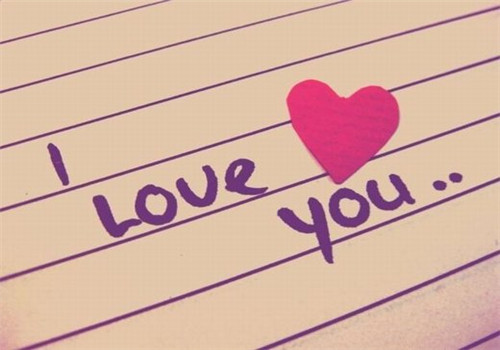 I
Love
you..